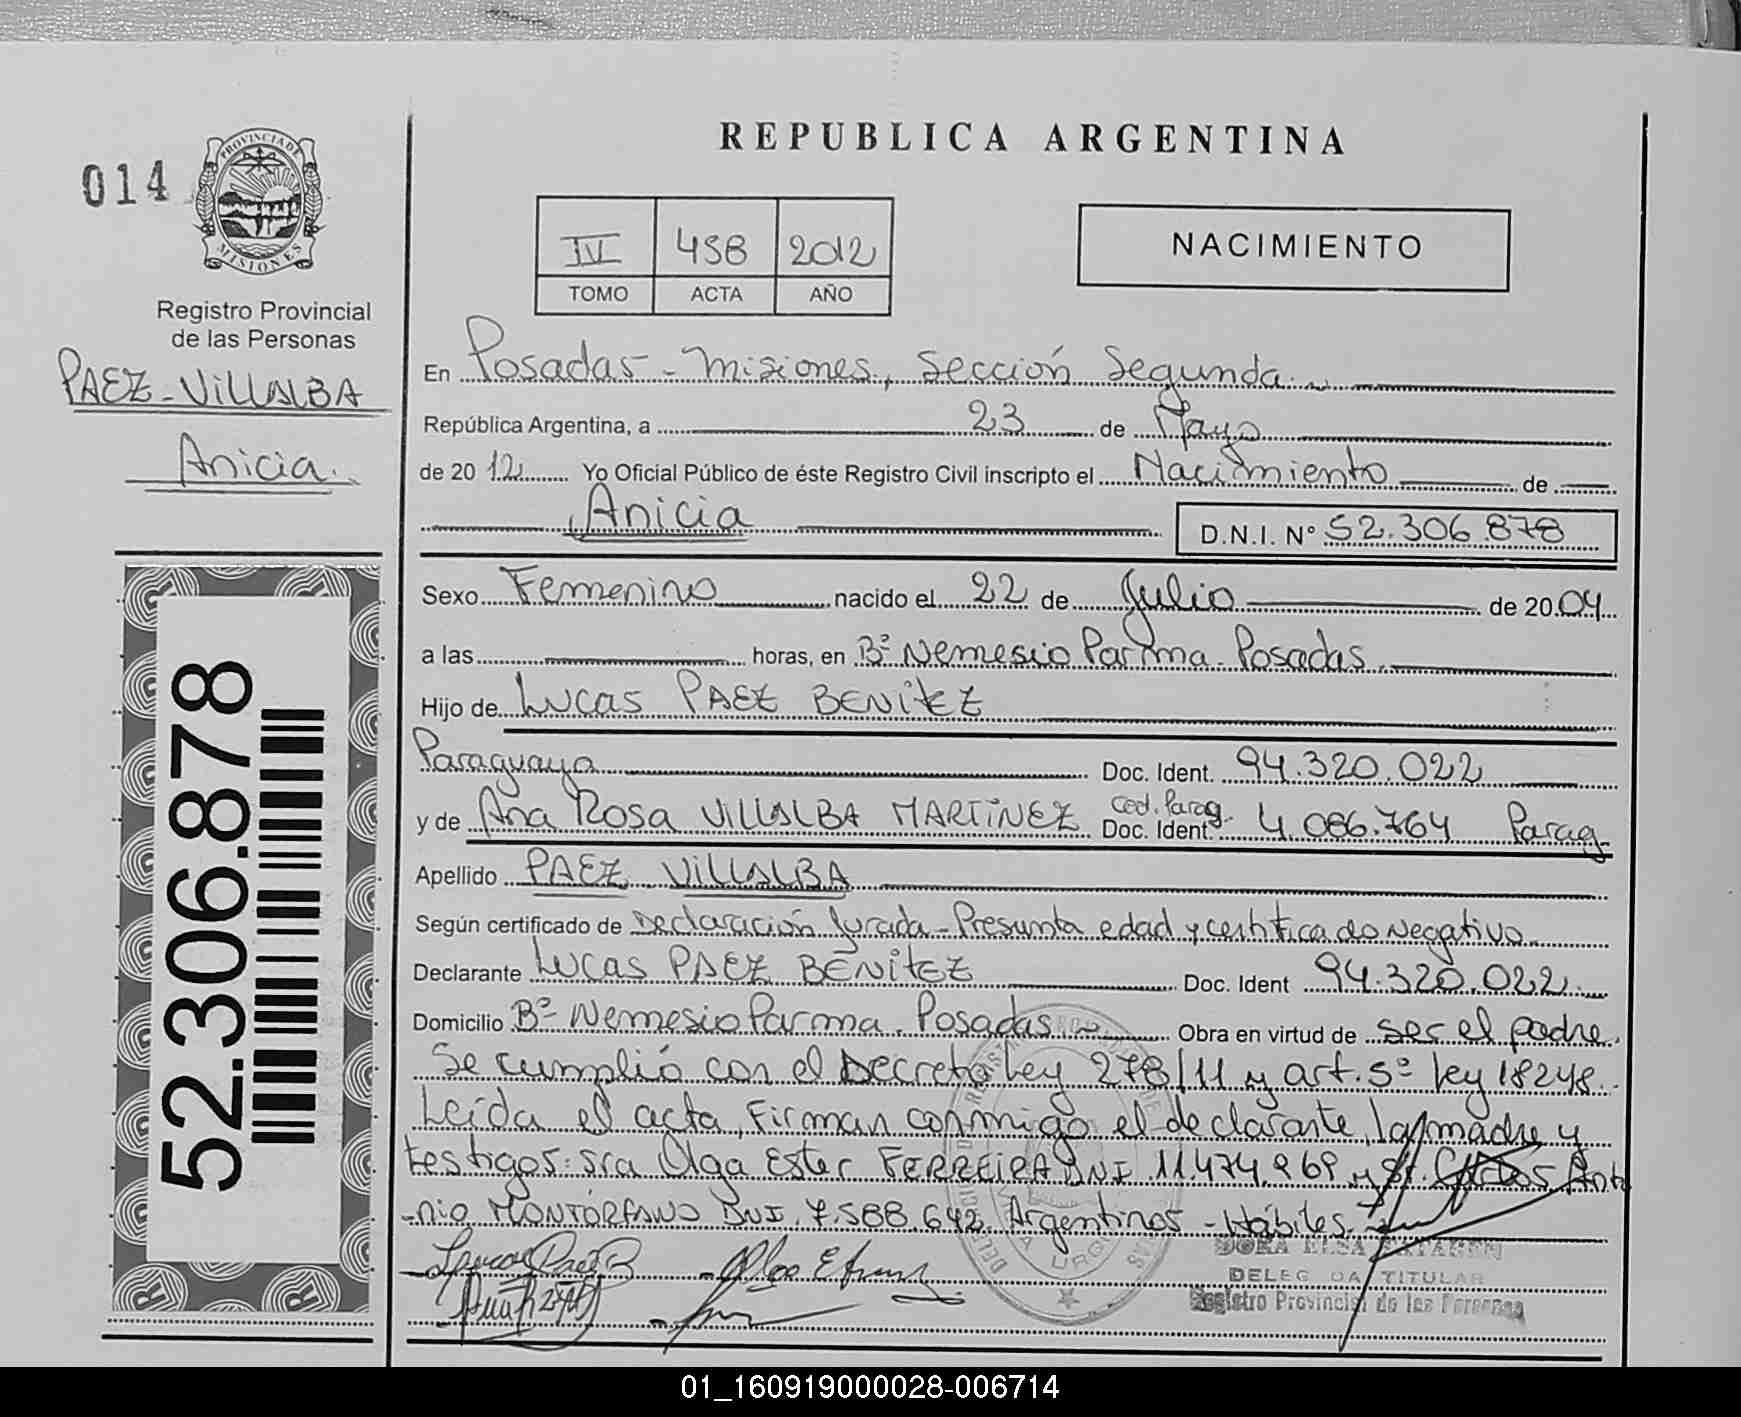 REPUBLICA ARGENTINA
014
PROVINCIA DE
MISIONES
Registro Provincial
de las Personas
PAEZ-VILLALBA
Anicia.
52.306.878
IV 458 2012
TOMO ACTA AÑO
NACIMIENTO
En Posadas - Misiones, Sección Segunda.
República Argentina, a 23 de Mayo
de 20 12 Yo Oficial Público de éste Registro Civil inscripto el Nacimiento de
Anicia
D.N.I. Nº 52.306.878
Sexo Femenino nacido el 22 de Julio de 20 04
a las horas, en Bº Nemesio Parma - Posadas
Hijo de Lucas PAEZ BENITEZ
Paraguayo Doc. Ident. 94.320.022
y de Ana Rosa VILLALBA MARTINEZ Ced. Parag. Doc. Ident. 4.086.764 Parag
Apellido PAEZ VILLALBA
Según certificado de Declaración Jurada - Presunta edad y certificado Negativo
Declarante Lucas PAEZ BENITEZ Doc. Ident 94.320.022
Domicilio Bº Nemesio Parma. Posadas Obra en virtud de ser el padre.
Se cumplió con el Decreto Ley 278/11 y art. 5º Ley 18248.
Leída el acta, Firman conmigo el declarante, la madre y
testigos: sra Olga Ester FERREIRA DNI 11.474.969 y Sr. Carlos Anto
-nio MONTÓRFANO DNI. 7.588.642. Argentinos - Hábiles.
DORA ELSA
DELEGADA TITULAR
Registro Provincial de las Personas
01_160919000028-006714